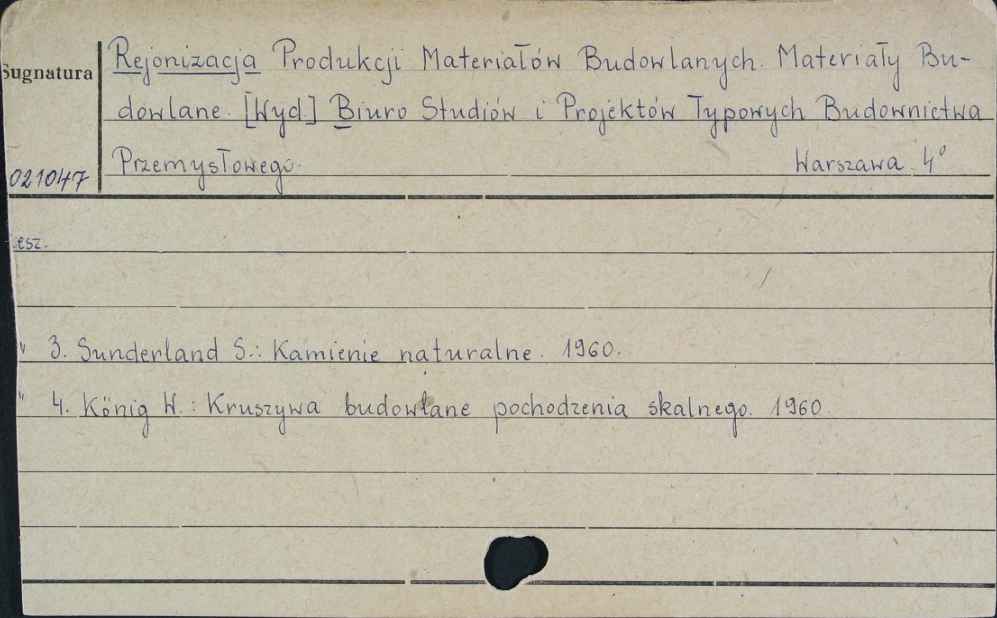 Sygnatura
Rejonizacja Produkcji Materiałów Budowlanych. Materiały Bu-
dowlane. [Wyd.] Biuro Studiów i Projektów Typowych Budownictwa
Przemysłowego. Warszawa. 4°
021047
esz.
" 3. Sunderland S.: Kamienie naturalne. 1960.
" 4. König W.: Kruszywa budowlane pochodzenia skalnego. 1960.